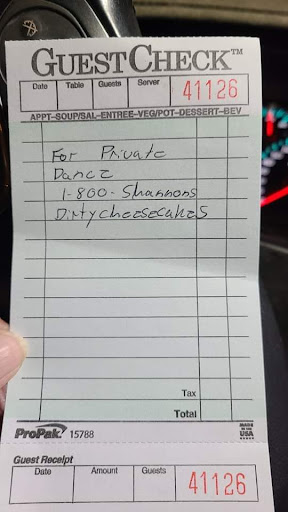 GUEST CHECK™
Date Table Guests Server 41126
APPT-SOUP/SAL-ENTREE-VEG/POT-DESSERT-BEV
For Private
Dance
1-800-Shannons
Dirtycheesecakes
Tax
Total
ProPak® 15788 MADE IN THE USA
Guest Receipt
Date Amount Guests 41126